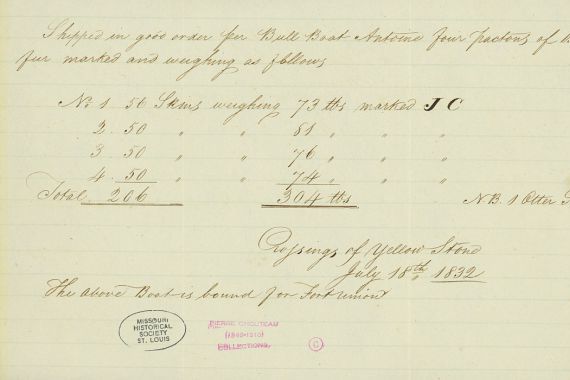 Shipped in good order per Bull Boat Antoine four pactons of B
fur marked and weighing as follows
No. 1. 56 Skins weighing 73 lbs marked JC
2. 50 " " 81 " " "
3. 50 " " 76 " " "
4. 50 " " 74 " " "
Total 206 304 lbs NB. 1 Otter
Crossings of Yellow Stone
July 18th 1832
The above Boat is bound for Fort union
MISSOURI
HISTORICAL
SOCIETY
ST. LOUIS
PIERRE CHOUTEAU
COLLECTIONS.
C